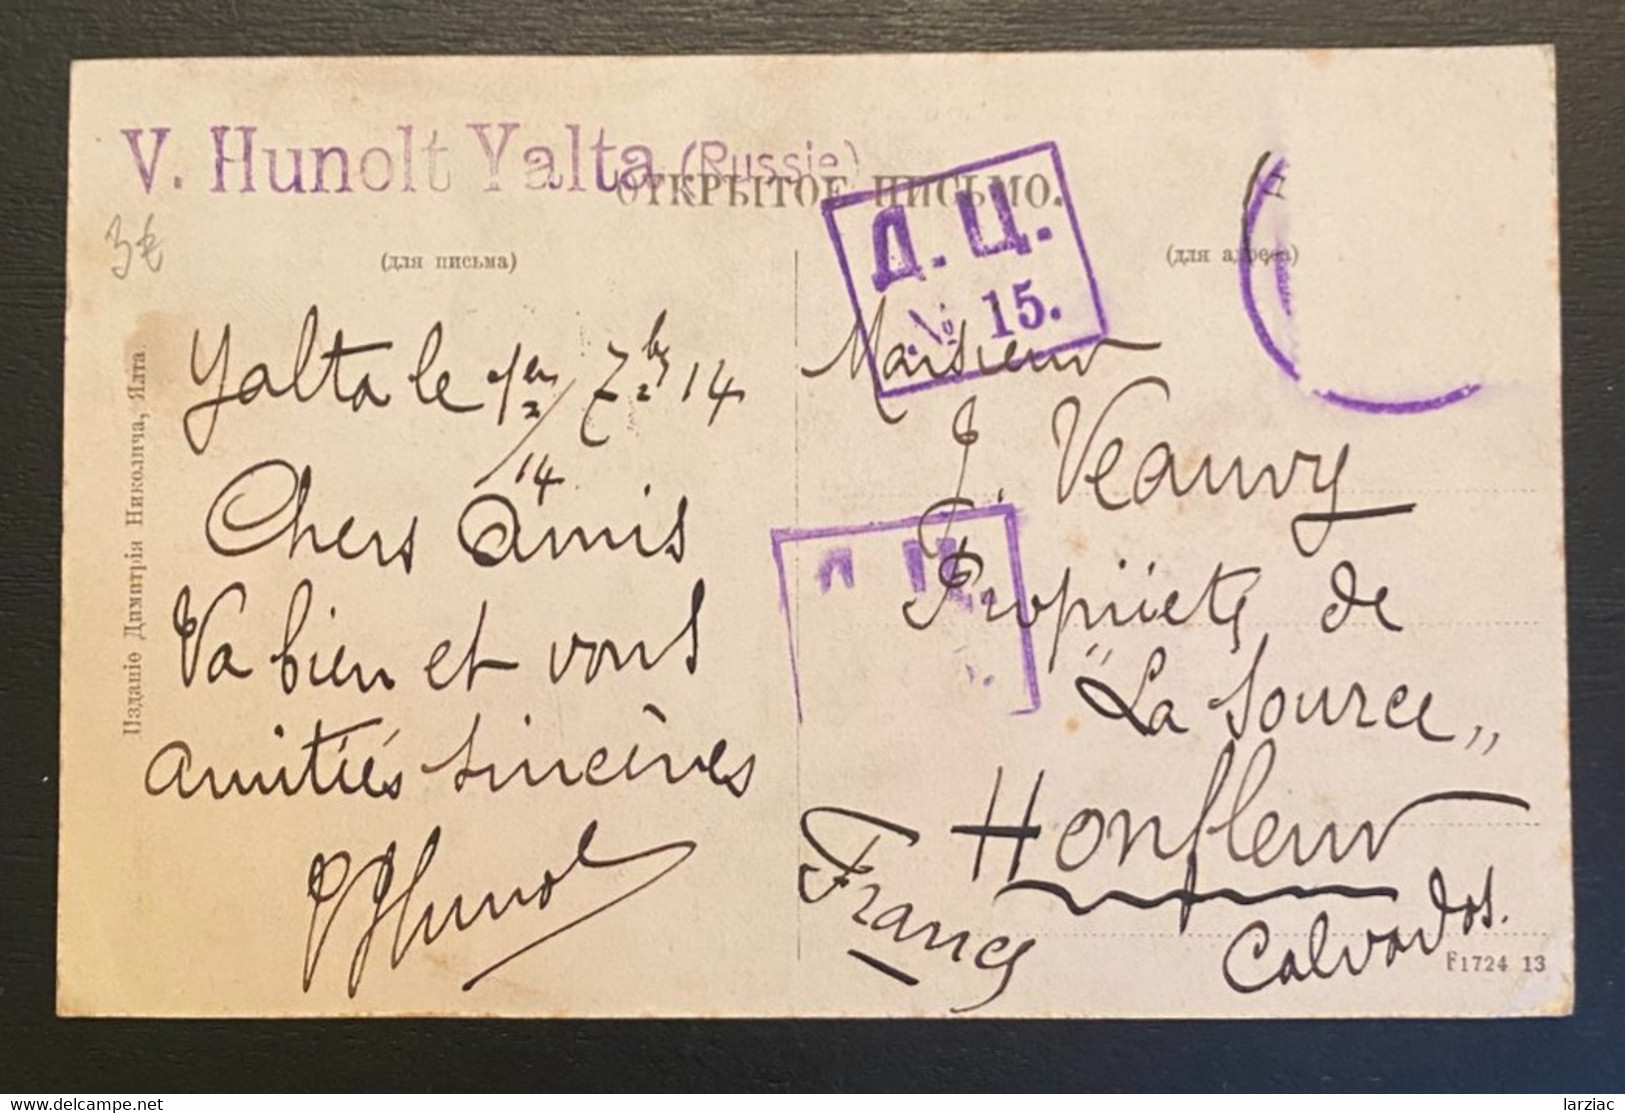 V. Hunolt Yalta (Russie)
ОТКРЫТОЕ ПИСЬМО.
3€
(для письма)
(для адреса)
Д. Ц.
№ 15.
Yalta le 1er 7bre 14
14
Chers amis
Va bien et vous
amitiés sincères
Hunolt
Изданіе Димитрія Николича, Ялта.
Monsieur
J. Veauvy
Propriété de
"La Source"
Honfleur
Calvados.
France
Д Ц.
F1724 13
delcampe.net
larziac